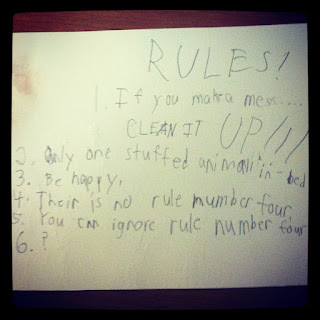 RULES!
1. If you make a mess....
CLEAN IT UP!!!
2. Only one stuffed animal in-bed
3. Be happy.
4. Their is no rule number four.
5. You can ignore rule number four
6. ?